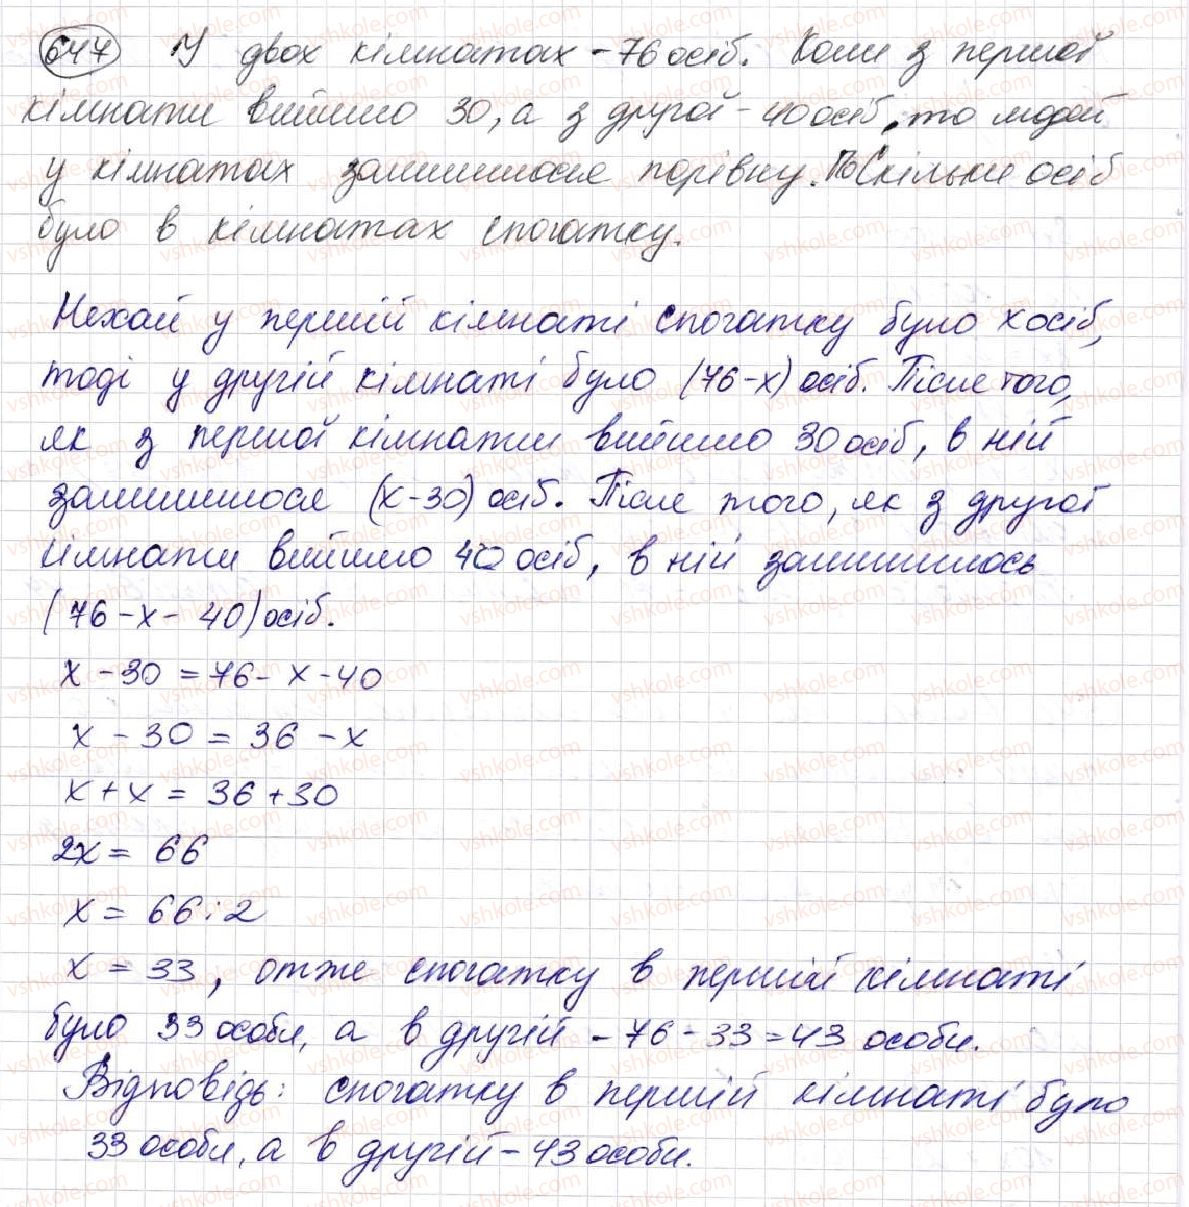 647 У двох кімнатах - 76 осіб. Коли з першої
кімнати вийшло 30, а з другої - 40 осіб, то людей
у кімнатах залишилося порівну. Скільки осіб
було в кімнатах спочатку.
Нехай у першій кімнаті спочатку було x осіб,
тоді у другій кімнаті було (76-x) осіб. Після того,
як з першої кімнати вийшло 30 осіб, в ній
залишилося (x-30) осіб. Після того, як з другої
кімнати вийшло 40 осіб, в ній залишилось
(76-x-40) осіб.
x - 30 = 76 - x - 40
x - 30 = 36 - x
x + x = 36 + 30
2x = 66
x = 66 : 2
x = 33, отже спочатку в першій кімнаті
було 33 особи, а в другій - 76 - 33 = 43 особи.
Відповідь: спочатку в першій кімнаті було
33 особи, а в другій - 43 особи.
vshkole.com